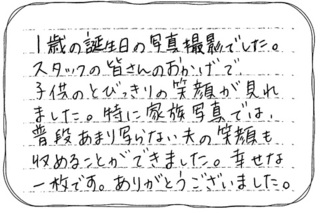 1歳の誕生日の写真撮影でした。
スタッフの皆さんのおかげで
子供のとびっきりの笑顔が見れ
ました。特に家族写真では、
普段あまり写らない夫の笑顔も
収めることができました。幸せな
一枚です。ありがとうございました。